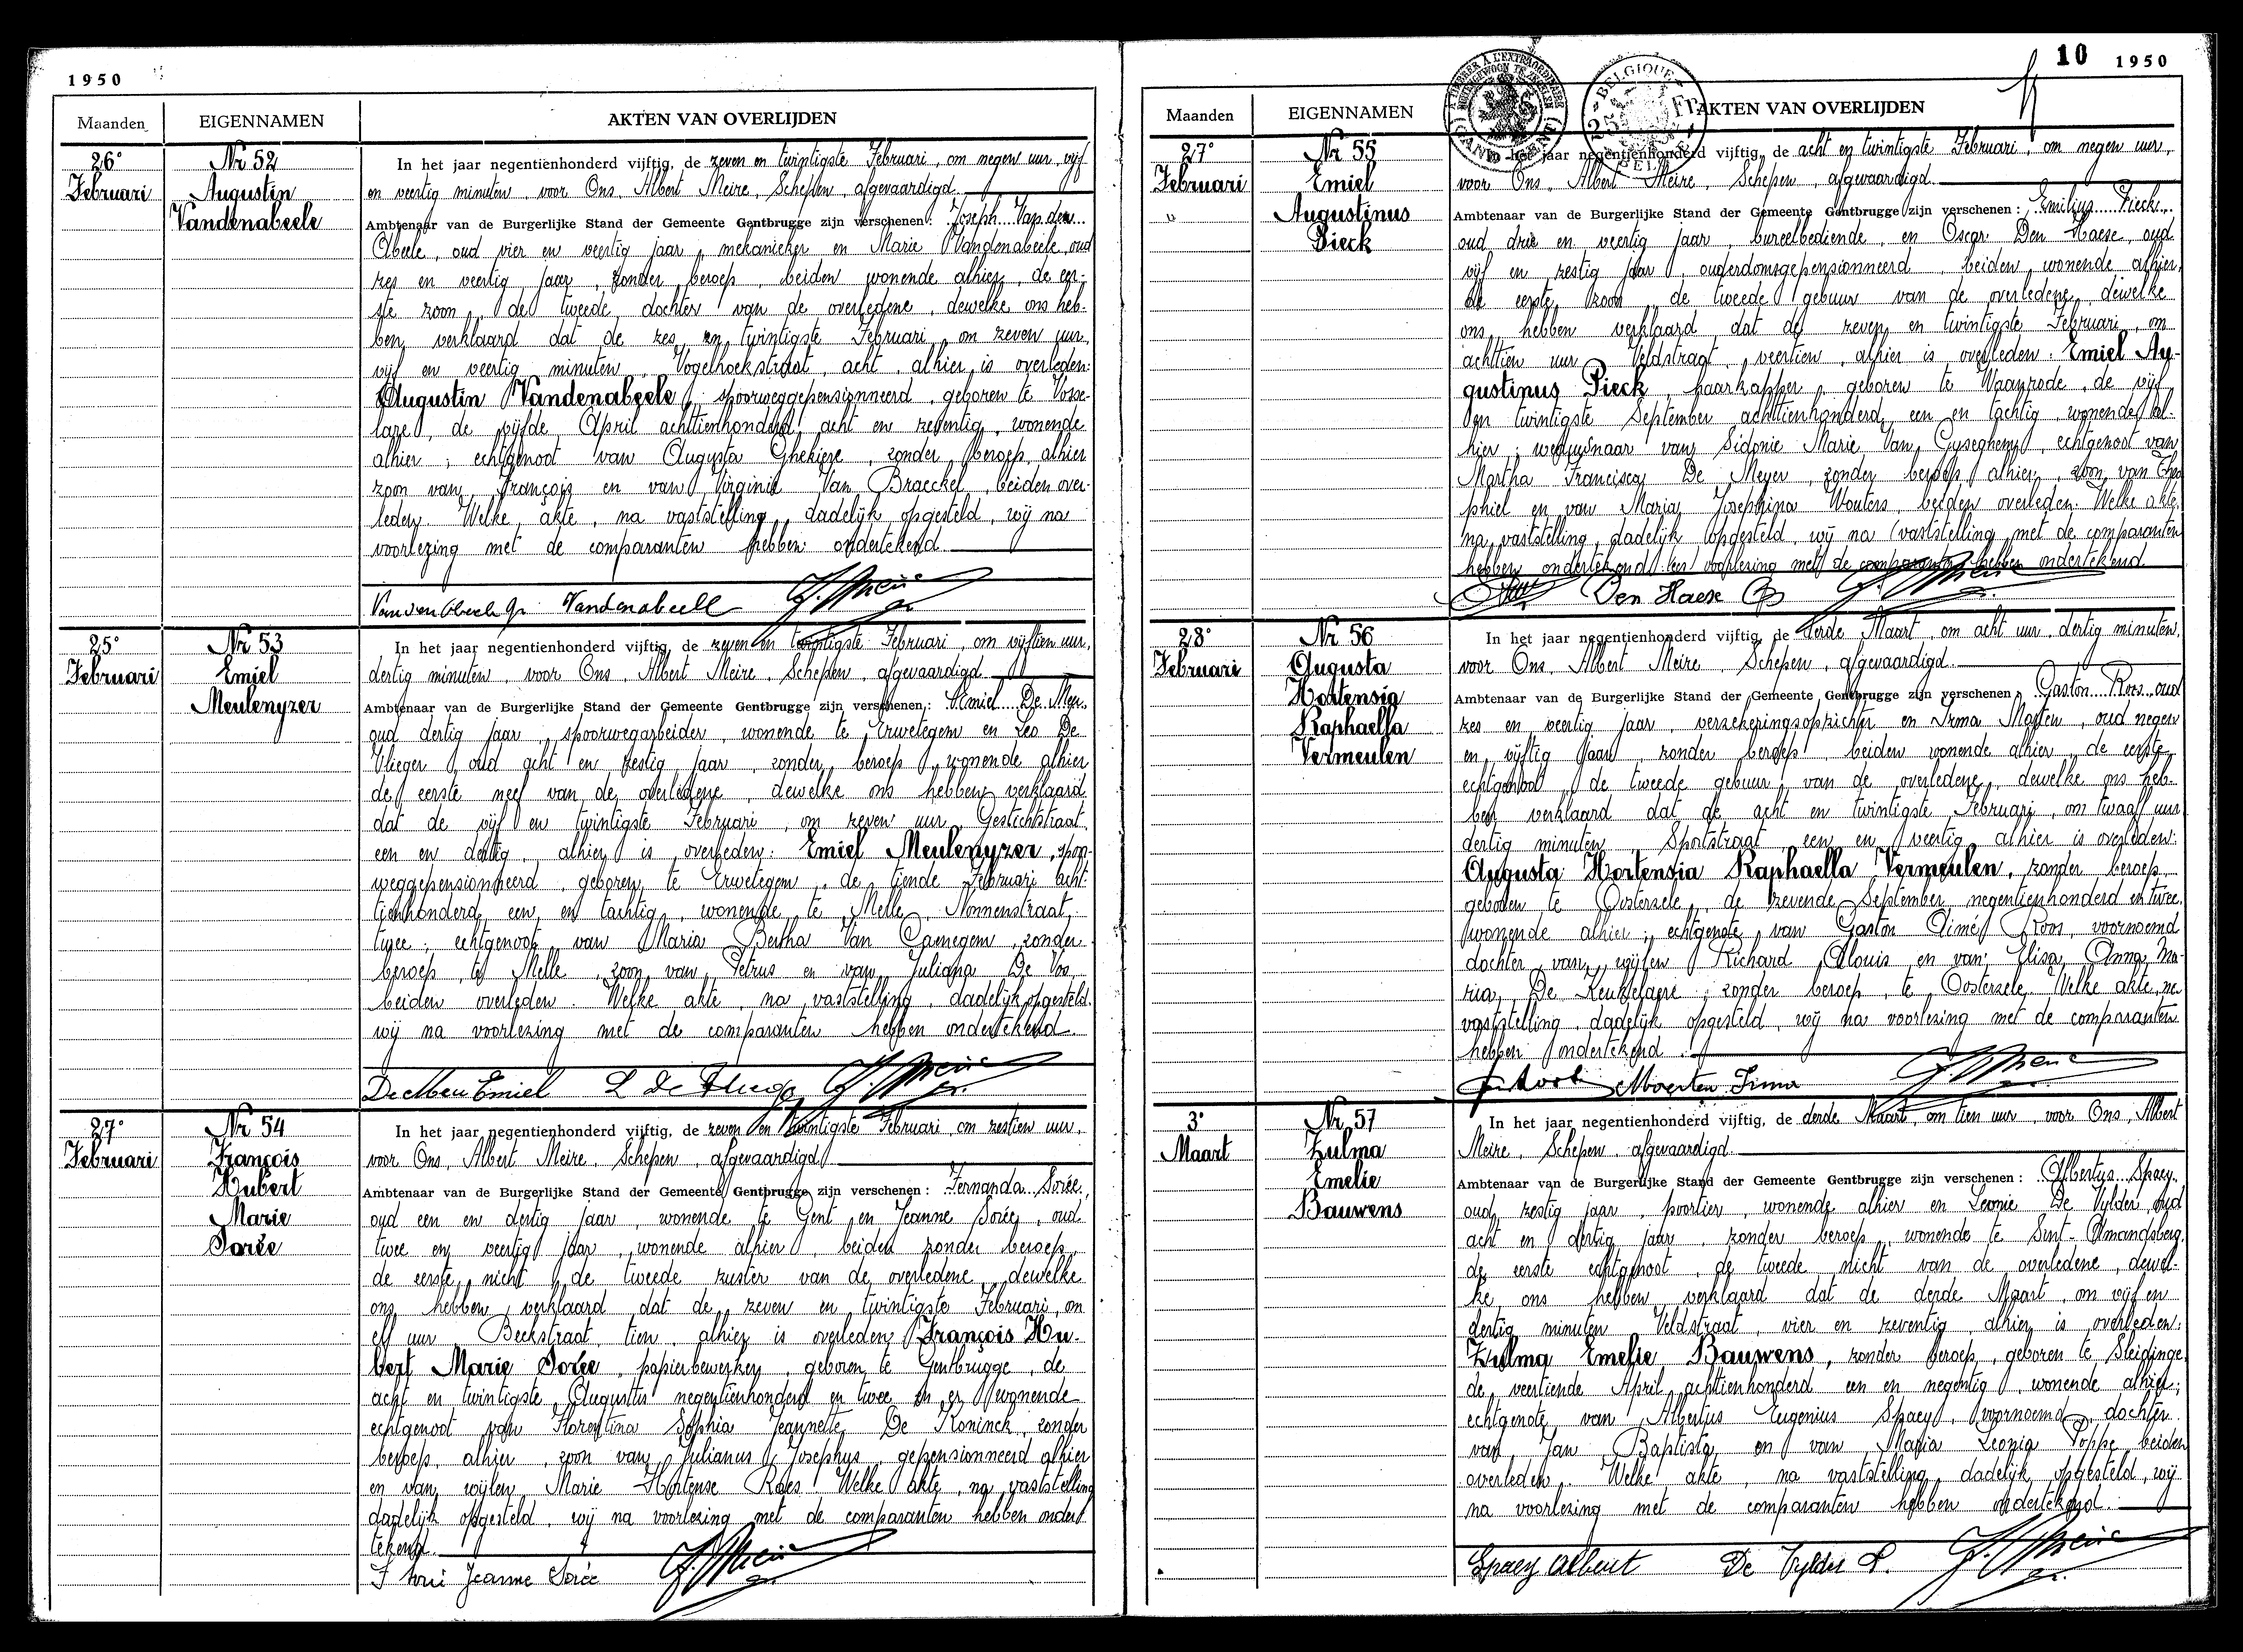 1950
Maanden EIGENNAMEN AKTEN VAN OVERLIJDEN
26e Februari
Nr 52
Augustin
Vandenabeele
In het jaar negentienhonderd vijftig, de zeven en twintigste Februari, om negen uur, vijf
en veertig minuten, voor Ons, Albert Meire, Schepen, afgevaardigd
Ambtenaar van de Burgerlijke Stand der Gemeente Gentbrugge zijn verschenen: Joseph Van den
Abeele, oud vier en veertig jaar, mekanieker en Marie Vandenabeele, oud
zes en veertig jaar, zonder beroep, beiden wonende alhier, de eer-
ste zoon, de tweede dochter van de overledene, dewelke ons heb-
ben verklaard dat de zes en twintigste Februari, om zeven uur,
vijf en veertig minuten, Vogelhoekstraat, acht, alhier is overleden:
Augustin Vandenabeele, spoorweggepensionneerd, geboren te Vosse-
lare, de vijfde April achttienhonderd acht en zeventig, wonende
alhier; echtgenoot van Augusta Ghekiere, zonder beroep, alhier
zoon van François en van Virginie Van Braeckel, beiden over-
leden. Welke akte, na vaststelling, dadelijk opgesteld, wij na
voorlezing met de comparanten hebben ondertekend.
Vandenabeele
25e Februari
Nr 53
Emiel
Meulenyzer
In het jaar negentienhonderd vijftig, de zeven en twintigste Februari, om vijftien uur,
dertig minuten, voor Ons, Albert Meire, Schepen, afgevaardigd
Ambtenaar van de Burgerlijke Stand der Gemeente Gentbrugge zijn verschenen: Emiel De Meu,
oud dertig jaar, spoorwegarbeider, wonende te Erwetegem en Leo De
Vlieger oud acht en zestig jaar, zonder beroep, wonende alhier
de eerste neef van de overledene, dewelke ons hebben verklaard
dat de vijf en twintigste Februari, om zeven uur, Gestichtstraat,
een en dertig, alhier is overleden: Emiel Meulenyzer, spoor-
weggepensionneerd, geboren te Erwetegem, de tiende Februari acht-
tienhonderd een en tachtig, wonende te Melle, Nonnenstraat,
twee; echtgenoot van Maria Bertha Van Caenegem, zonder
beroep, te Melle, zoon van Petrus en van Juliana De Vos
beiden overleden. Welke akte, na vaststelling, dadelijk opgesteld,
wij na voorlezing met de comparanten hebben ondertekend
De Meu Emiel L De Vlieger
27e Februari
Nr 54
François
Hubert
Marie
Sorée
In het jaar negentienhonderd vijftig, de zeven en twintigste Februari, om zestien uur,
voor Ons, Albert Meire, Schepen, afgevaardigd
Ambtenaar van de Burgerlijke Stand der Gemeente Gentbrugge zijn verschenen: Fernanda Sorée,
oud een en dertig jaar, wonende te Gent en Jeanne Sorée, oud
twee en veertig jaar, wonende alhier, beiden zonder beroep,
de eerste nicht, de tweede zuster van de overledene, dewelke
ons hebben verklaard dat de zeven en twintigste Februari, om
elf uur, Beekstraat, tien, alhier is overleden: François Hu-
bert Marie Sorée, papierbewerker, geboren te Gentbrugge, de
acht en twintigste Augustus negentienhonderd en twee en er wonende
echtgenoot van Florentina Sophia Jeannette De Koninck, zonder
beroep, alhier, zoon van Julianus Josephus, gepensionneerd alhier
en van wijlen Marie Hortense Raes. Welke akte, na vaststelling
dadelijk opgesteld, wij na voorlezing met de comparanten hebben onder-
tekend.
Jeanne Sorée
10 1950
Maanden EIGENNAMEN AKTEN VAN OVERLIJDEN
27e Februari
Nr 55
Emiel
Augustinus
Pieck
In het jaar negentienhonderd vijftig, de acht en twintigste Februari, om negen uur,
voor Ons, Albert Meire, Schepen, afgevaardigd
Ambtenaar van de Burgerlijke Stand der Gemeente Gentbrugge zijn verschenen: Emilius Pieck,
oud drie en veertig jaar, bureelbediende, en Oscar Den Haese, oud
vijf en zestig jaar, ouderdomsgepensionneerd, beiden wonende alhier,
de eerste zoon, de tweede gebuur van de overledene, dewelke
ons hebben verklaard dat de zeven en twintigste Februari, om
achttien uur Veldstraat, veertien, alhier is overleden: Emiel Au-
gustinus Pieck, haarkapper, geboren te Waanrode, de vijf
en twintigste September achttienhonderd een en tachtig, wonende al-
hier; weduwnaar van Sidonie Marie Van Cyseghem, echtgenoot van
Martha Francisca De Meyer, zonder beroep alhier, zoon van Theo
phiel en van Maria Josephina Wouters, beiden overleden. Welke akte,
na vaststelling, dadelijk opgesteld, wij na vaststelling met de comparanten
hebben ondertekend voorlezing met de comparanten hebben ondertekend.
Den Haese
28e Februari
Nr 56
Augusta
Hortensia
Raphaella
Vermeulen
In het jaar negentienhonderd vijftig, de derde Maart, om acht uur, dertig minuten,
voor Ons, Albert Meire, Schepen, afgevaardigd
Ambtenaar van de Burgerlijke Stand der Gemeente Gentbrugge zijn verschenen: Gaston Roos, oud
zes en veertig jaar, verzekeringsopzichter en Irma Maerten, oud negen
en vijftig jaar, zonder beroep, beiden wonende alhier, de eerste
echtgenoot, de tweede gebuur van de overledene, dewelke ons heb-
ben verklaard dat de acht en twintigste Februari, om twaalf uur
dertig minuten, Sportstraat, een en veertig, alhier is overleden:
Augusta Hortensia Raphaella Vermeulen, zonder beroep,
geboren te Oosterzele, de zevende September negentienhonderd en twee,
wonende alhier; echtgenote van Gaston Aimé Roos, voornoemd
dochter van wijlen Richard Alouis en van Elisa Anna Ma-
ria De Keukelaere, zonder beroep, te Oosterzele. Welke akte, na
vaststelling, dadelijk opgesteld, wij na voorlezing met de comparanten
hebben ondertekend.
Maerten Irma
3e Maart
Nr 57
Zulma
Emelie
Bauwens
In het jaar negentienhonderd vijftig, de derde Maart, om tien uur, voor Ons, Albert
Meire, Schepen, afgevaardigd
Ambtenaar van de Burgerlijke Stand der Gemeente Gentbrugge zijn verschenen: Albertus Spaey,
oud zestig jaar, poortier, wonende alhier en Leonie De Vylder, oud
acht en dertig jaar, zonder beroep, wonende te Sint-Amandsberg,
de eerste echtgenoot, de tweede nicht van de overledene, dewel-
ke ons hebben verklaard dat de derde Maart, om vijf en
dertig minuten Veldstraat, vier en zeventig, alhier is overleden:
Zulma Emelie Bauwens, zonder beroep, geboren te Sleidinge,
de veertiende April achttienhonderd een en negentig, wonende alhier;
echtgenote van Albertus Eugenius Spaey, voornoemd, dochter
van Jan Baptista en van Maria Leonia Poppe, beiden
overleden. Welke akte, na vaststelling, dadelijk opgesteld, wij
na voorlezing met de comparanten hebben ondertekend.
Spaey Albert De Vylder L.